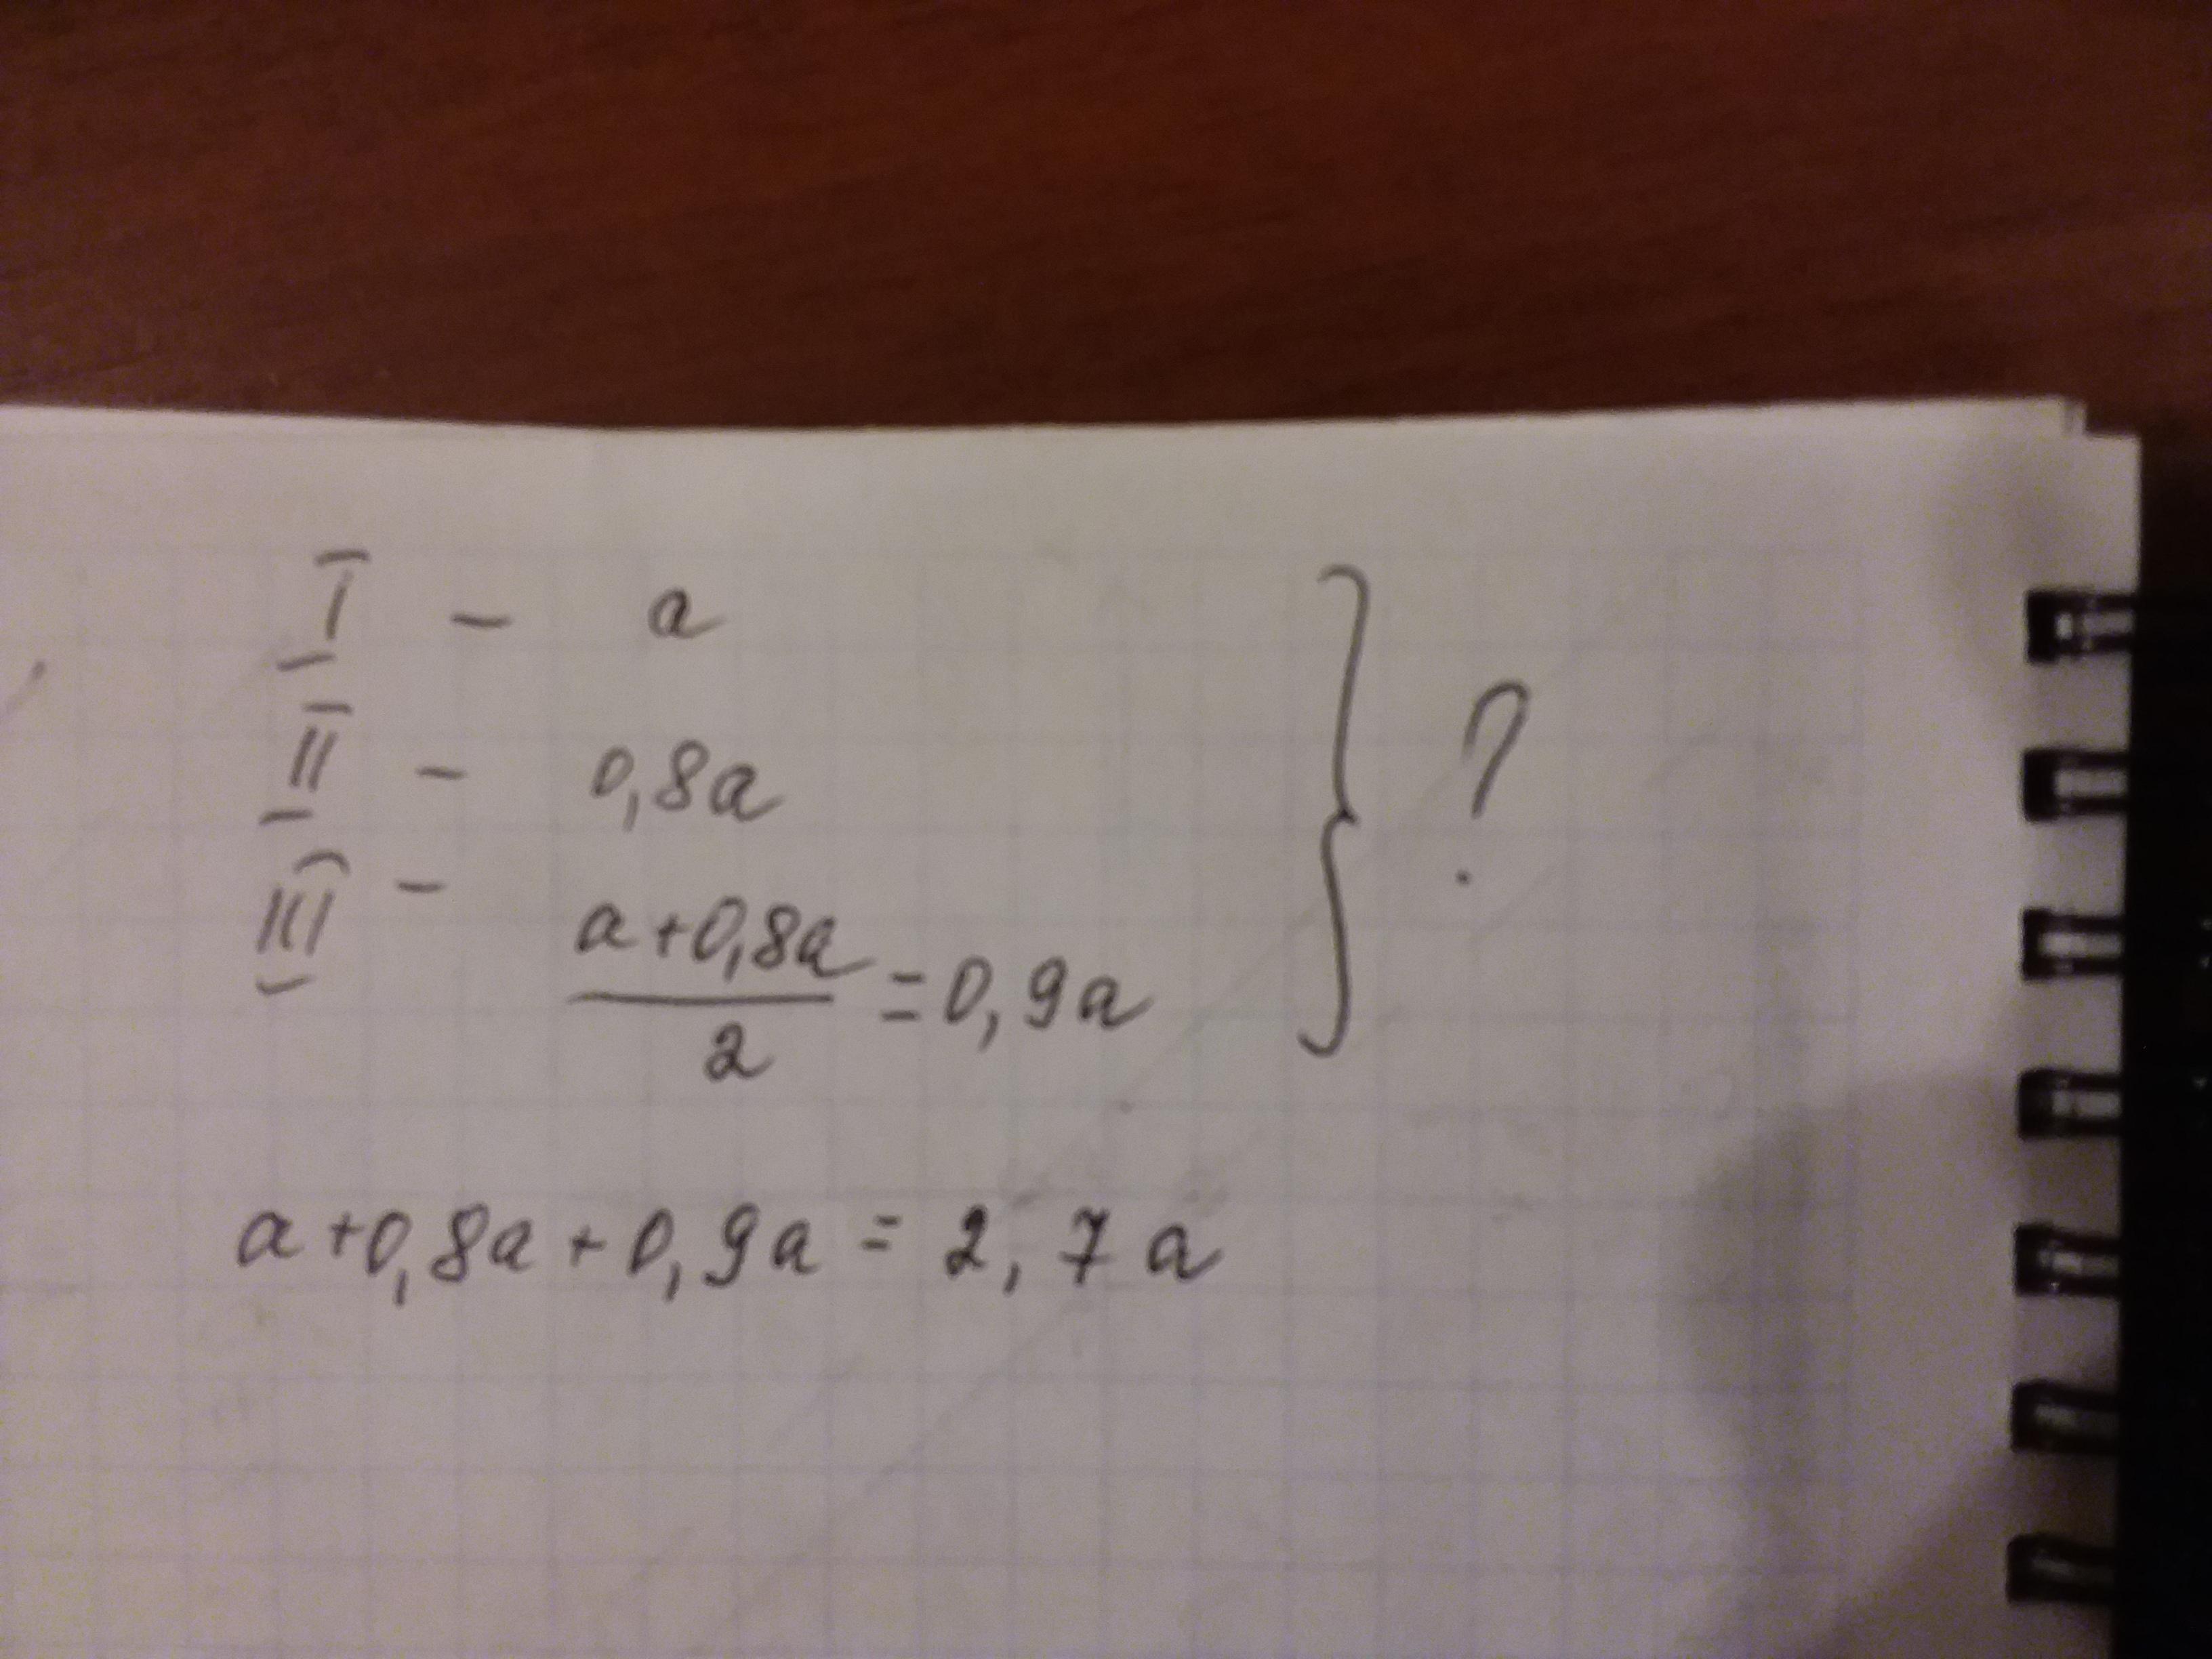 I - a
II - 0,8a
III - (a+0,8a)/2 = 0,9a } ?
a+0,8a+0,9a = 2,7a